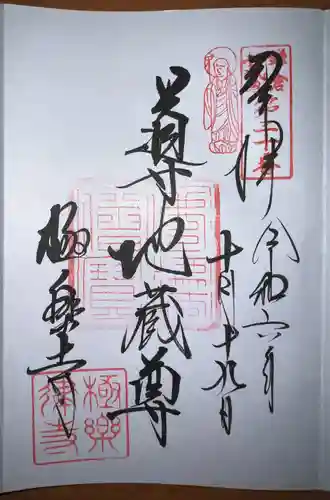 奉拝
令和六年
十月十九日
導地蔵尊
極楽寺
極樂
律寺